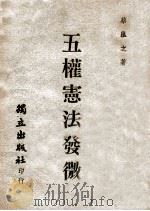 著
五權憲法發微
獨立出版社
印行